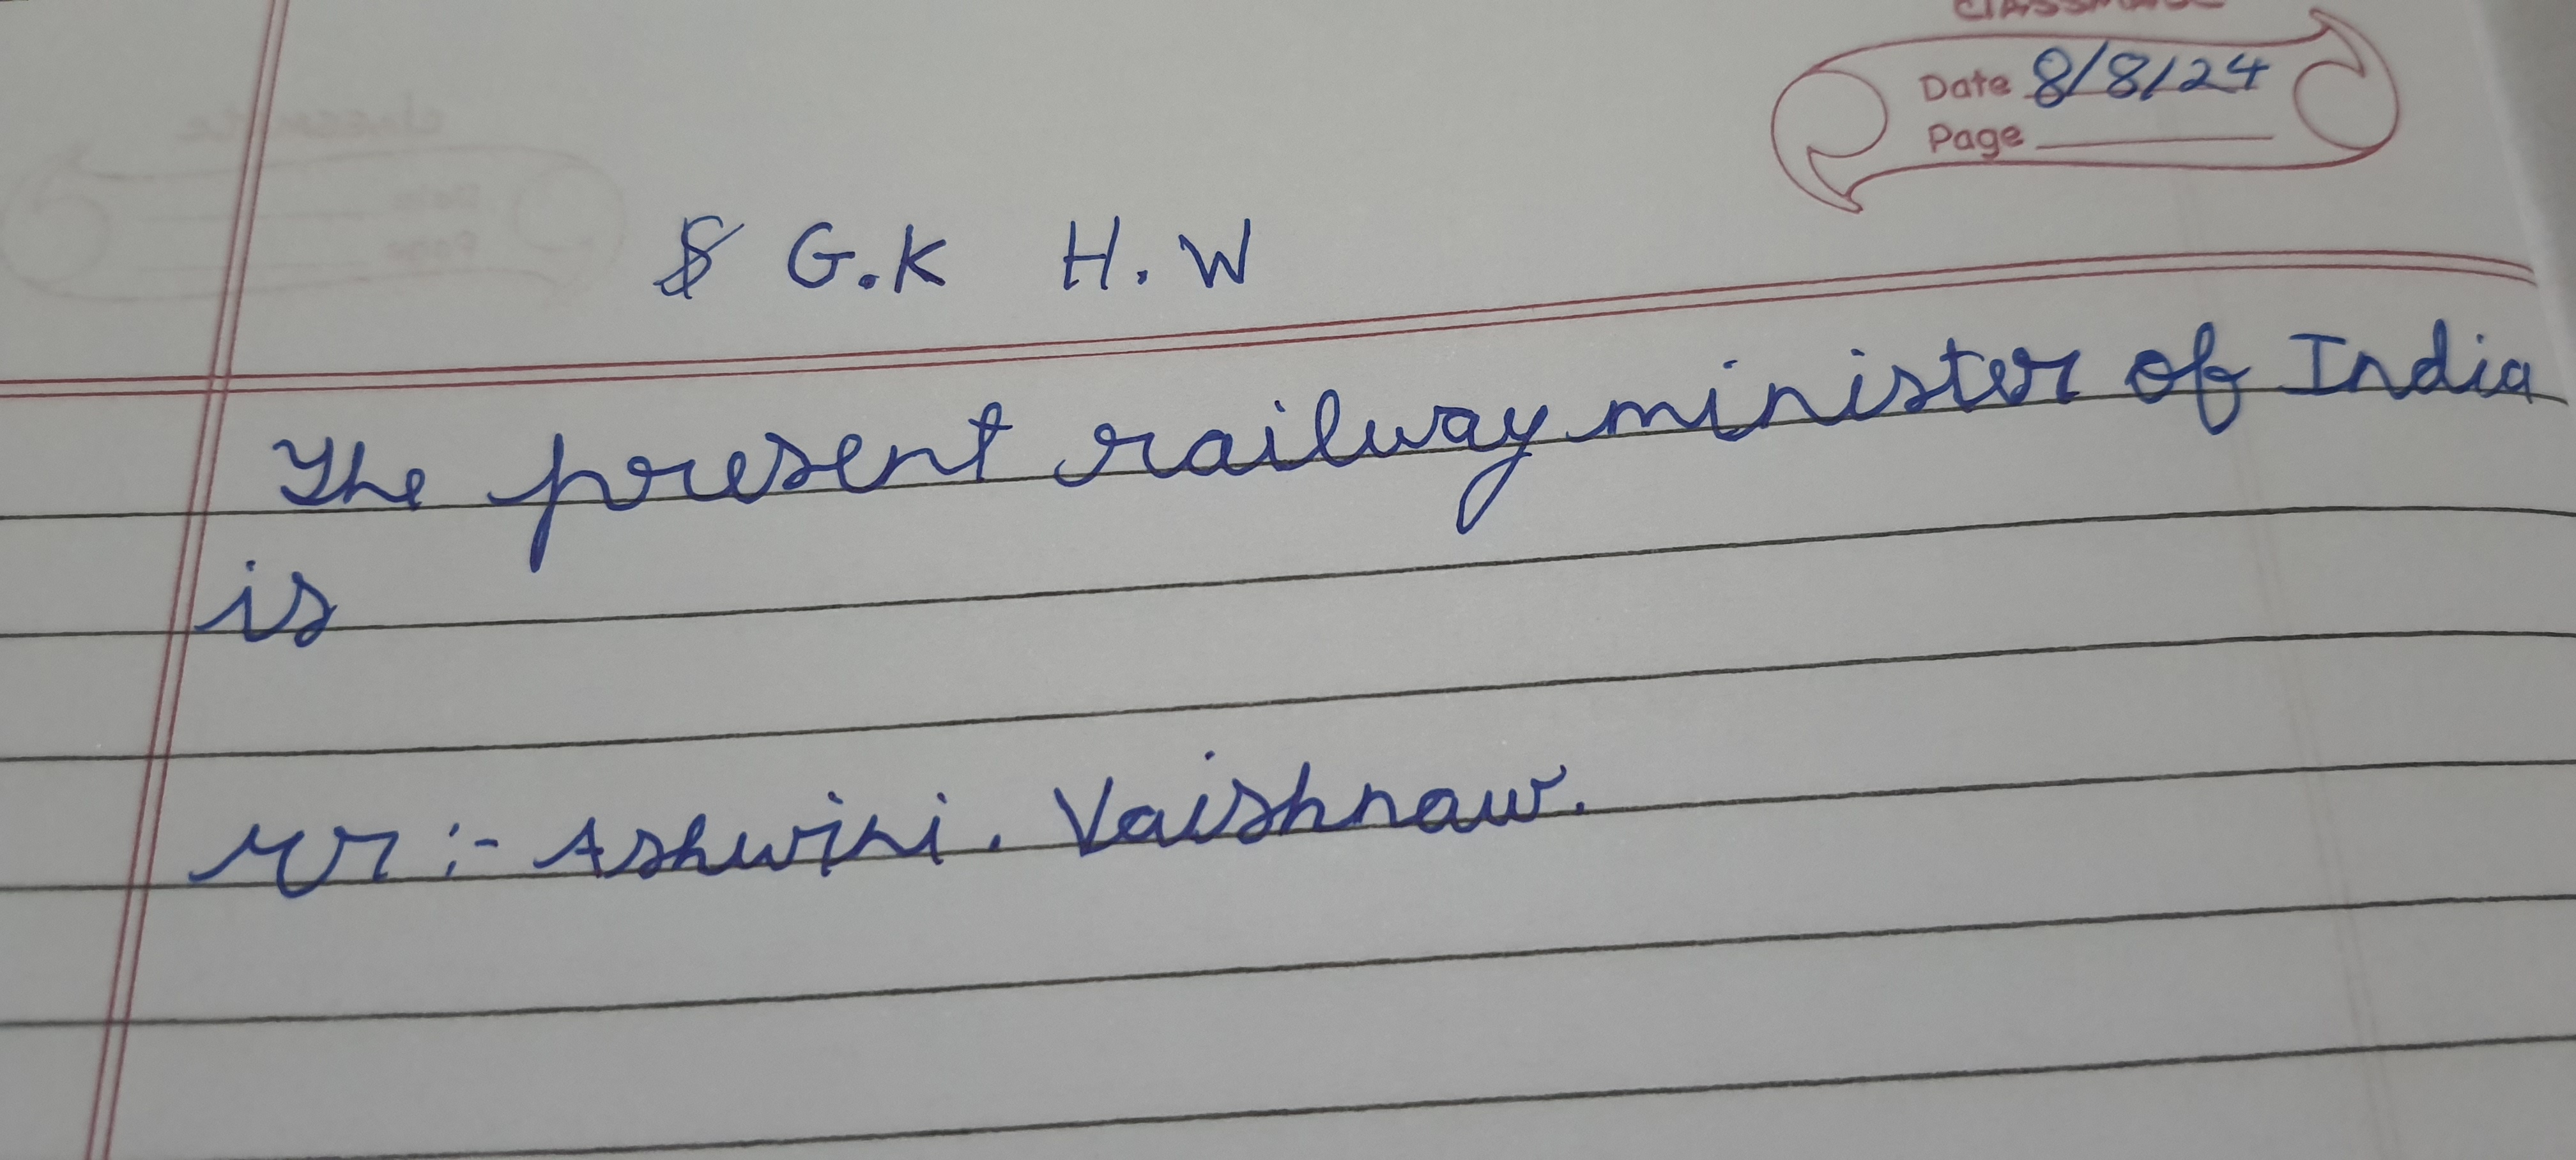 classmate
Date 8/8/24
Page
G.K H.W
The present railway minister of India
is
:- Ashwini. Vaishnaw.